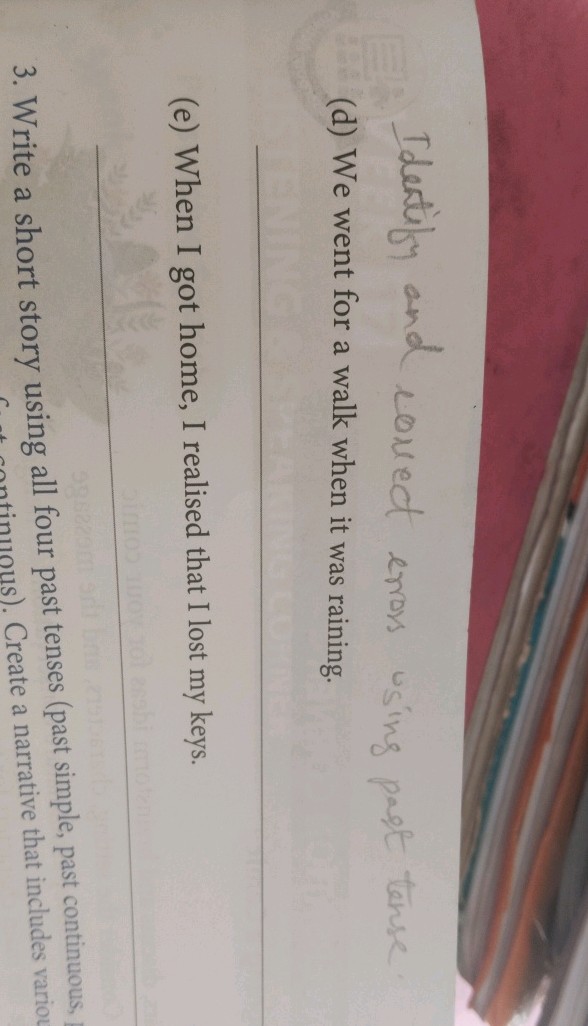 Identify and correct errors using past tense.
(d) We went for a walk when it was raining.
(e) When I got home, I realised that I lost my keys.
3. Write a short story using all four past tenses (past simple, past continuous,
continuous). Create a narrative that includes